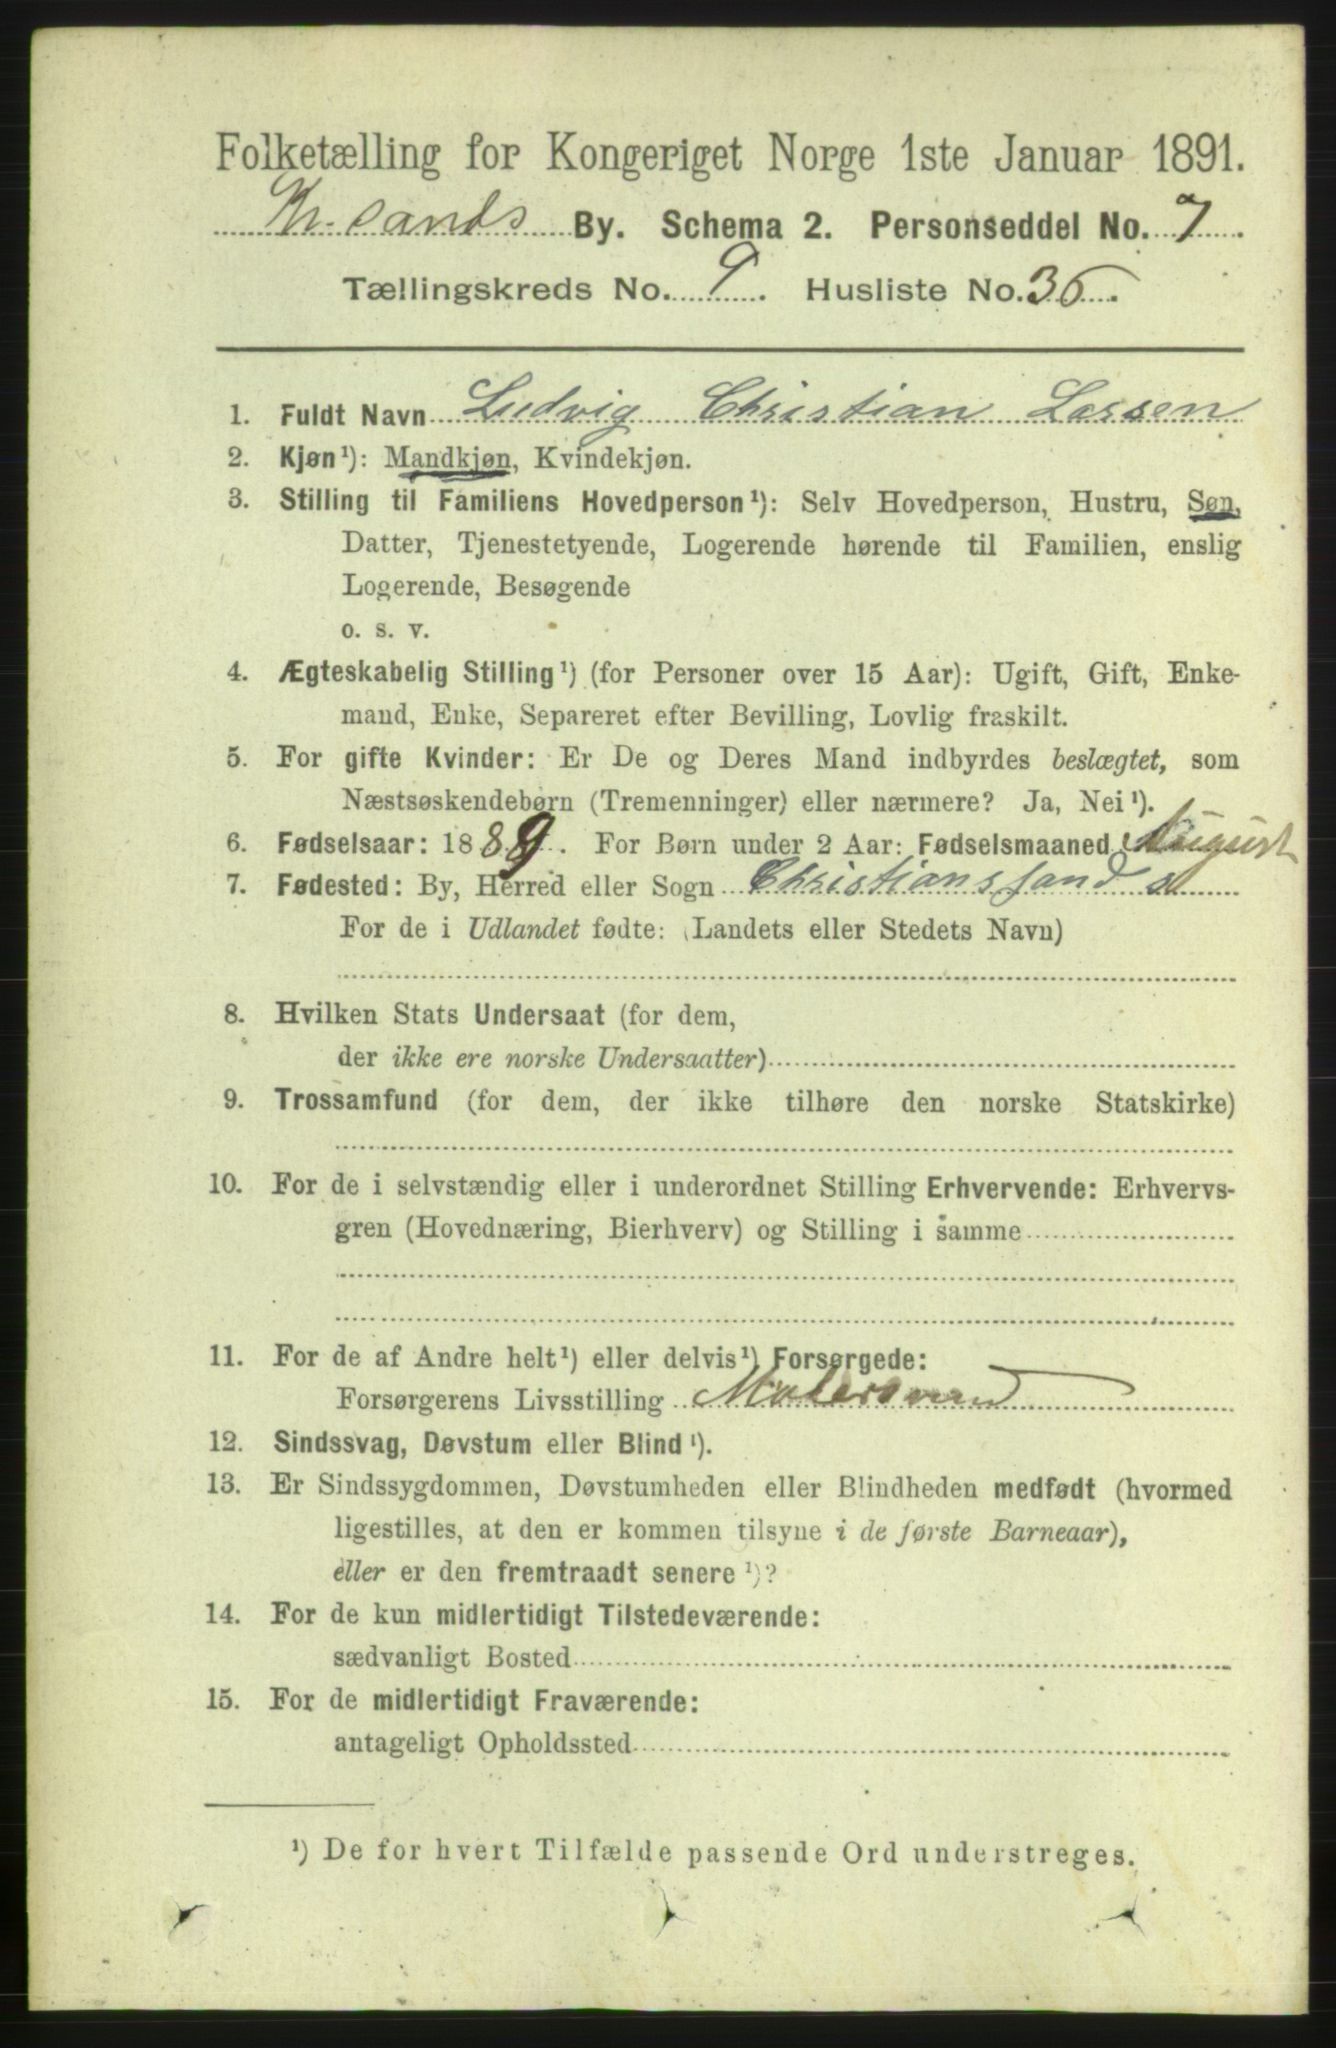 Folketælling for Kongeriget Norge 1ste Januar 1891.
Kr.sands By. Schema 2. Personseddel No. 7.
Tællingskreds No. 9. Husliste No. 36.
1. Fuldt Navn Ludvig Christian Larsen
2. Kjøn¹): Mandkjøn, Kvindekjøn.
3. Stilling til Familiens Hovedperson¹): Selv Hovedperson, Hustru, Søn,
Datter, Tjenestetyende, Logerende hørende til Familien, enslig
Logerende, Besøgende
o. s. v.
4. Ægteskabelig Stilling¹) (for Personer over 15 Aar): Ugift, Gift, Enke-
mand, Enke, Separeret efter Bevilling, Lovlig fraskilt.
5. For gifte Kvinder: Er De og Deres Mand indbyrdes beslægtet, som
Næstsøskendebørn (Tremenninger) eller nærmere? Ja, Nei¹).
6. Fødselsaar: 1889. For Børn under 2 Aar: Fødselsmaaned August
7. Fødested: By, Herred eller Sogn Christianssand s
For de i Udlandet fødte: (Landets eller Stedets Navn)
8. Hvilken Stats Undersaat (for dem,
der ikke ere norske Undersaatter)
9. Trossamfund (for dem, der ikke tilhøre den norske Statskirke)
10. For de i selvstændig eller i underordnet Stilling Erhvervende: Erhvervs-
gren (Hovednæring, Bierhverv) og Stilling i samme
11. For de af Andre helt¹) eller delvis¹) Forsørgede:
Forsørgerens Livsstilling Malersvend
12. Sindssvag, Døvstum eller Blind¹).
13. Er Sindssygdommen, Døvstumheden eller Blindheden medfødt (hvormed
ligestilles, at den er kommen tilsyne i de første Barneaar),
eller er den fremtraadt senere¹)?
14. For de kun midlertidigt Tilstedeværende:
sædvanligt Bosted
15. For de midlertidigt Fraværende:
antageligt Opholdssted
¹) De for hvert Tilfælde passende Ord understreges.